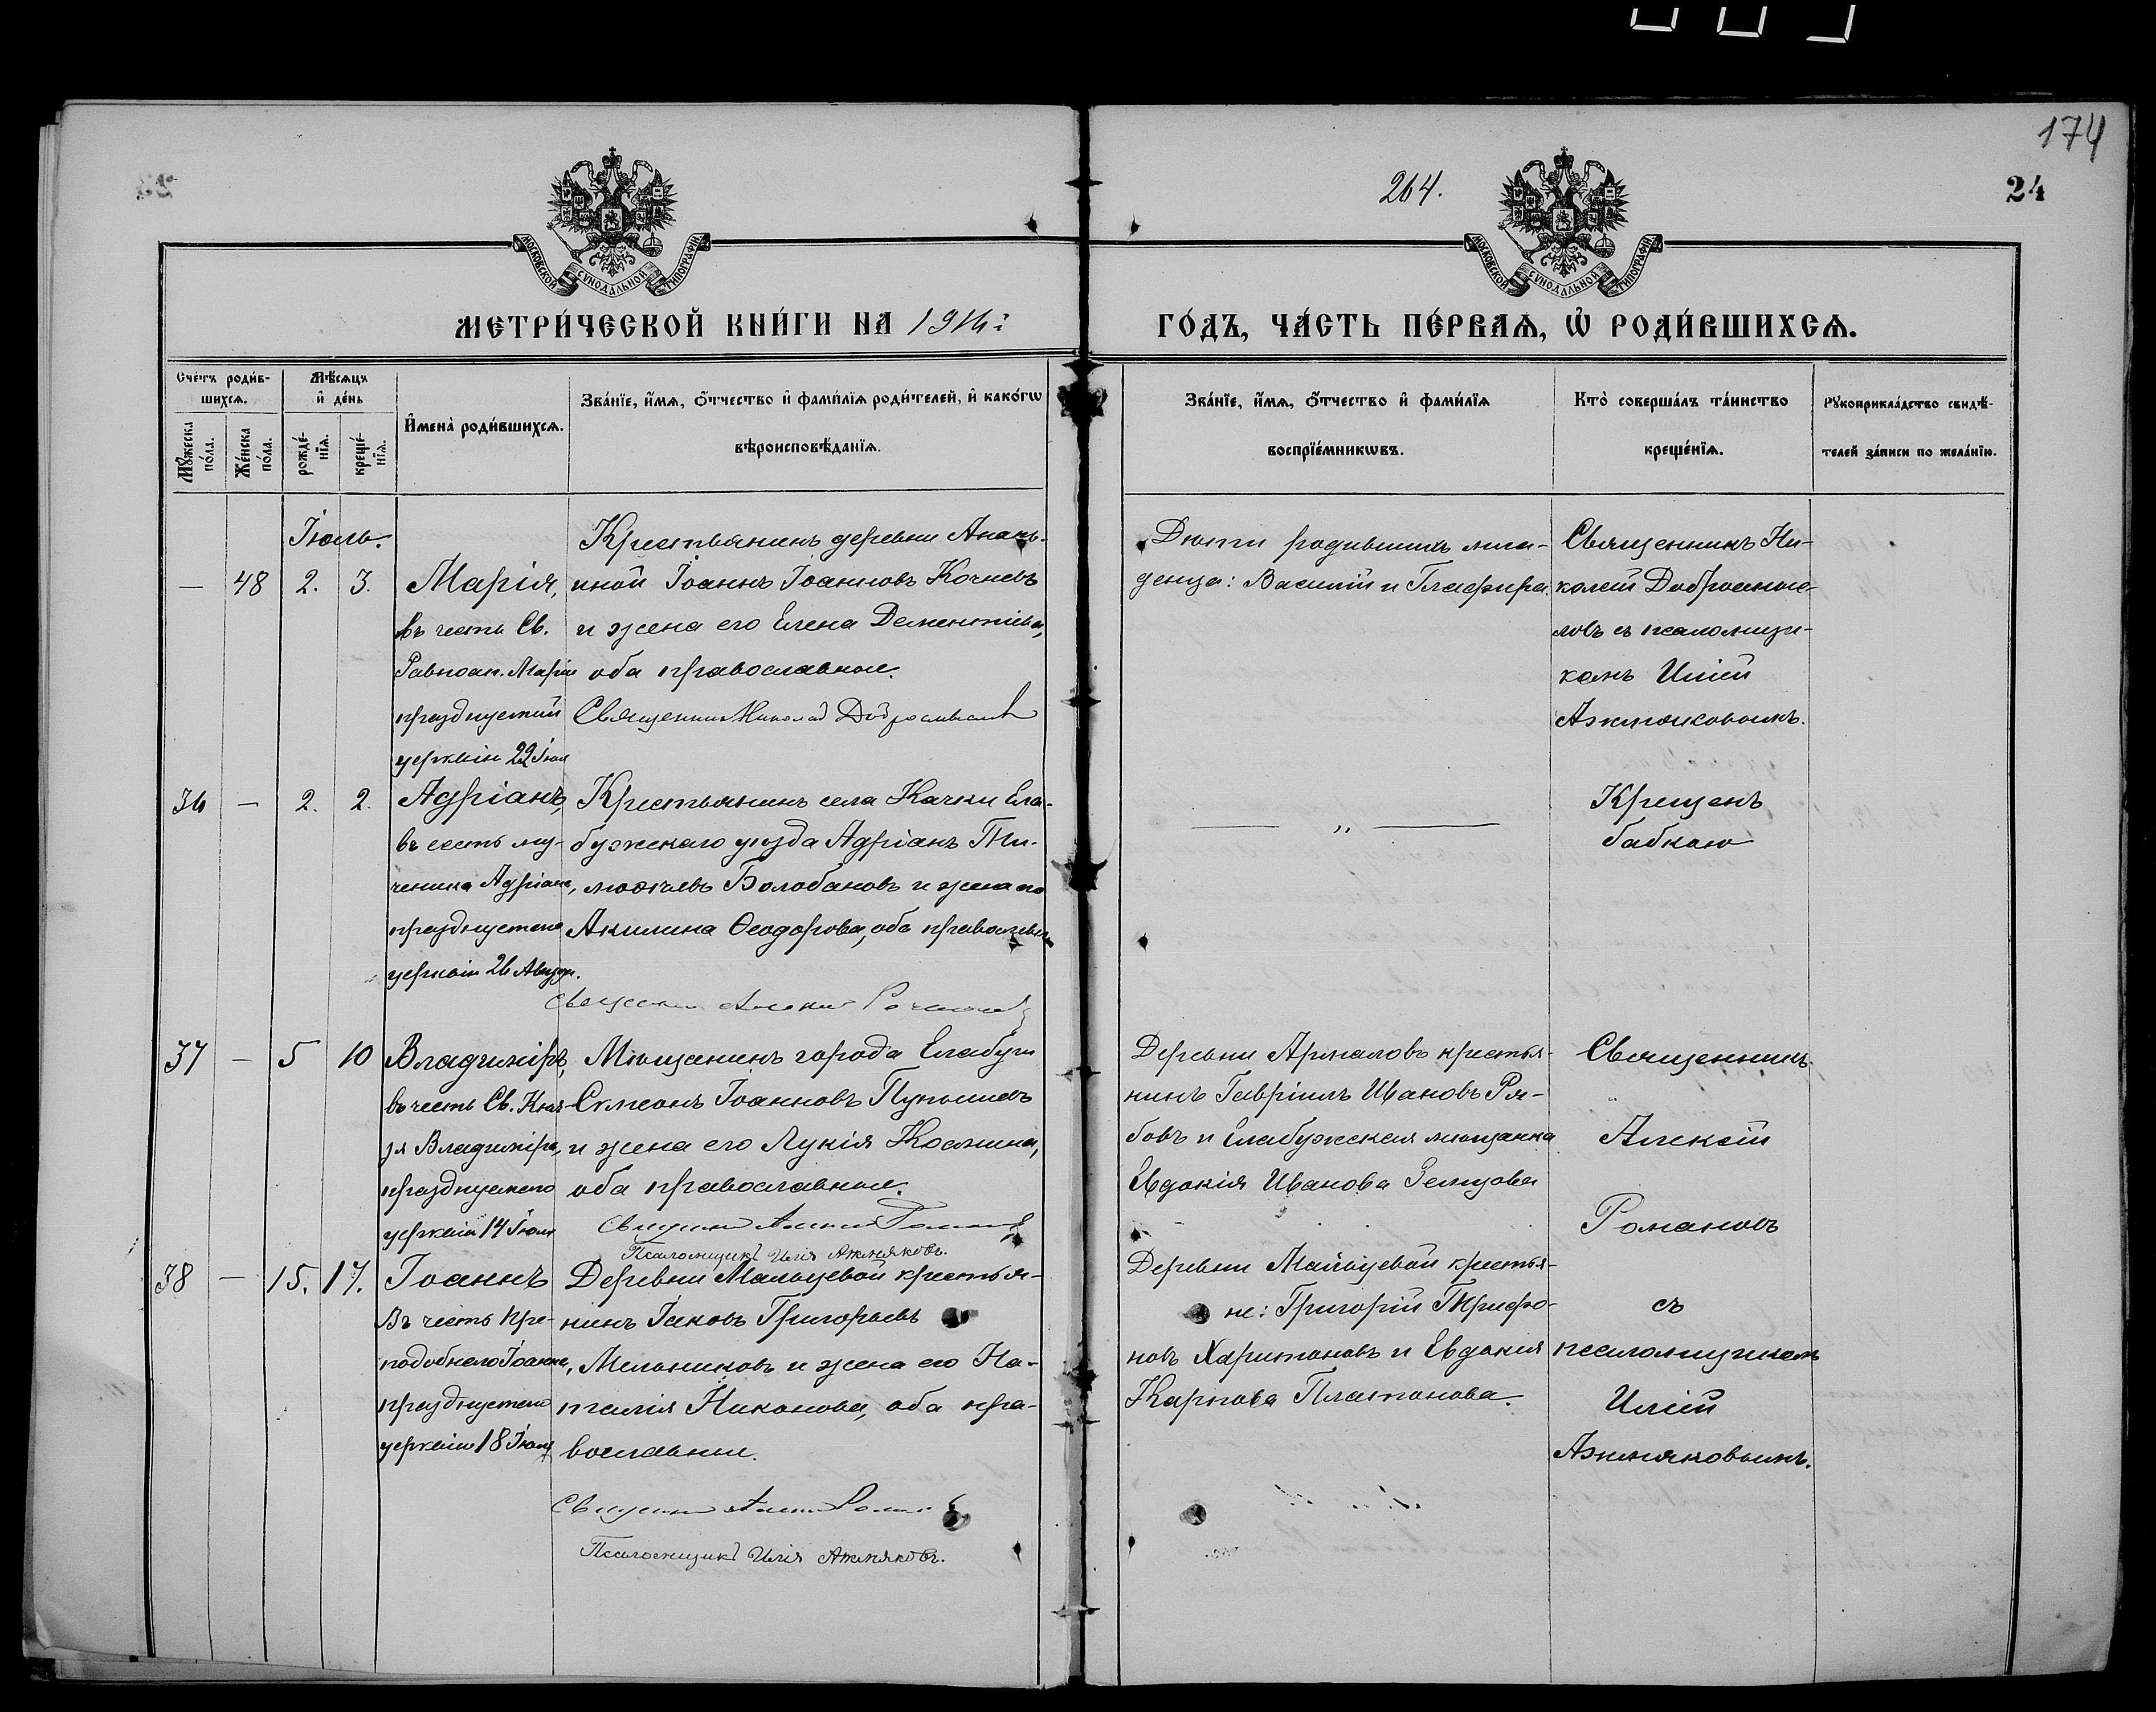 174
264.
24
МОСКОВСКОЙ СѴНОДАЛЬНОЙ ТИПОГРАФІИ
МОСКОВСКОЙ СѴНОДАЛЬНОЙ ТИПОГРАФІИ
МЕТРИ́ЧЕСКОЙ КНИ́ГИ НА 191
ГО́ДЪ, ЧА́СТЬ ПЕ́РВАѦ, Ѡ҆ РОДИ́ВШИХСѦ.
Сче́тъ роди́в-
шихсѧ.
Мꙋ́жеска по́ла.
Же́нска по́ла.
Мѣ́сѧцъ
и҆ де́нь
рожде́-
нїѧ.
креще́-
нїѧ.
И҆мена̀ роди́вшихсѧ.
Зва́нїе, и҆́мѧ, ѻ҆́тчество и҆ фами́лїѧ роди́телей, и҆ како́гѡ
вѣроисповѣ́данїѧ.
Зва́нїе, и҆́мѧ, ѻ҆́тчество и҆ фами́лїѧ
воспрїе́мникѡвъ.
Кто̀ соверша́лъ та́инство
креще́нїѧ.
Рꙋкоприкла́дство свидѣ́-
телей за́писи по жела́нїю.
Іюль.
— 48 2. 3.
Марія,
въ честь Св.
Равноап. Маріи
празднуемой
церковію 22 Іюля
Крестьянинъ деревни Анань-
иной Іоаннъ Іоанновъ Кочневъ
и жена его Елена Дементіева,
оба православные.
Священникъ Николай Добросмысловъ
Дѣти родившихъ мла-
денца: Василій и Глафира.
Священникъ Ни-
колай Добросмыс-
ловъ съ псаломщи-
комъ Иліей
Ажмяковымъ.
36 — 2. 2.
Адріанъ,
въ честь му-
ченика Адріана,
празднуемаго
церковію 26 Август.
Крестьянинъ села Качки Ела-
бужскаго уѣзда Адріанъ Ти-
моѳеевъ Болобановъ и жена его
Акилина Ѳеодорова, оба православные
Священникъ Алексій Романовъ
— „ —
Крещенъ
бабкою
37 — 5 10
Владиміръ,
въ честь Св. Кня-
зя Владиміра,
празднуемаго
церковію 14 Іюля
Мѣщанинъ города Елабуги
Сѵмеонъ Іоанновъ Пупышевъ
и жена его Лукія Косьмина,
оба православные.
Священникъ Алексій Романовъ
Псаломщикъ Илія Ажмяковъ.
Деревни Армаловъ крестья-
нинъ Гавріилъ Ивановъ Ря-
бовъ и Елабужская мѣщанка
Евдокія Иванова Землцова
Священникъ
Алексій
Романовъ
38 — 15. 17.
Іоаннъ
Въ честь Пре-
подобнаго Іоанна,
празднуемаго
церковію 18 Іюля
Деревни Мальцевой крестья-
нинъ Іаковъ Григорьевъ
Мельниковъ и жена его На-
талія Никонова, оба пра-
вославные.
Священникъ Алексій Романовъ
Псаломщикъ Илія Ажмяковъ.
Деревни Мальцевой крестья-
не: Григорій Трифо-
новъ Харитоновъ и Евдокія
Карпова Платонова.
съ
псаломщикомъ
Иліей
Ажмяковымъ.